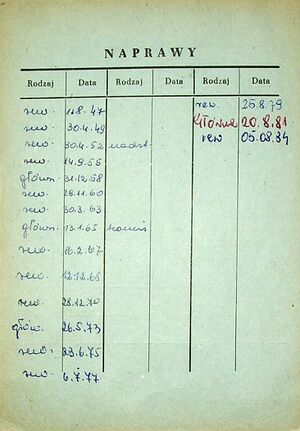 NAPRAWY
Rodzaj Data Rodzaj Data Rodzaj Data
rew. 1.8.47 rew. 25.8.79
rew. 30.4.49 Główna 20.8.81
rew. 30.4.52 rew 05.08.84
rew. 14.9.55
główn. 31.12.58
rew. 28.11.60
rew. 30.3.63
główn. 13.1.65
rew. 16.2.67
rew. 12.12.68
rew. 28.12.70
głów. 26.5.73
rew. 23.6.75
rew. 6.7.77